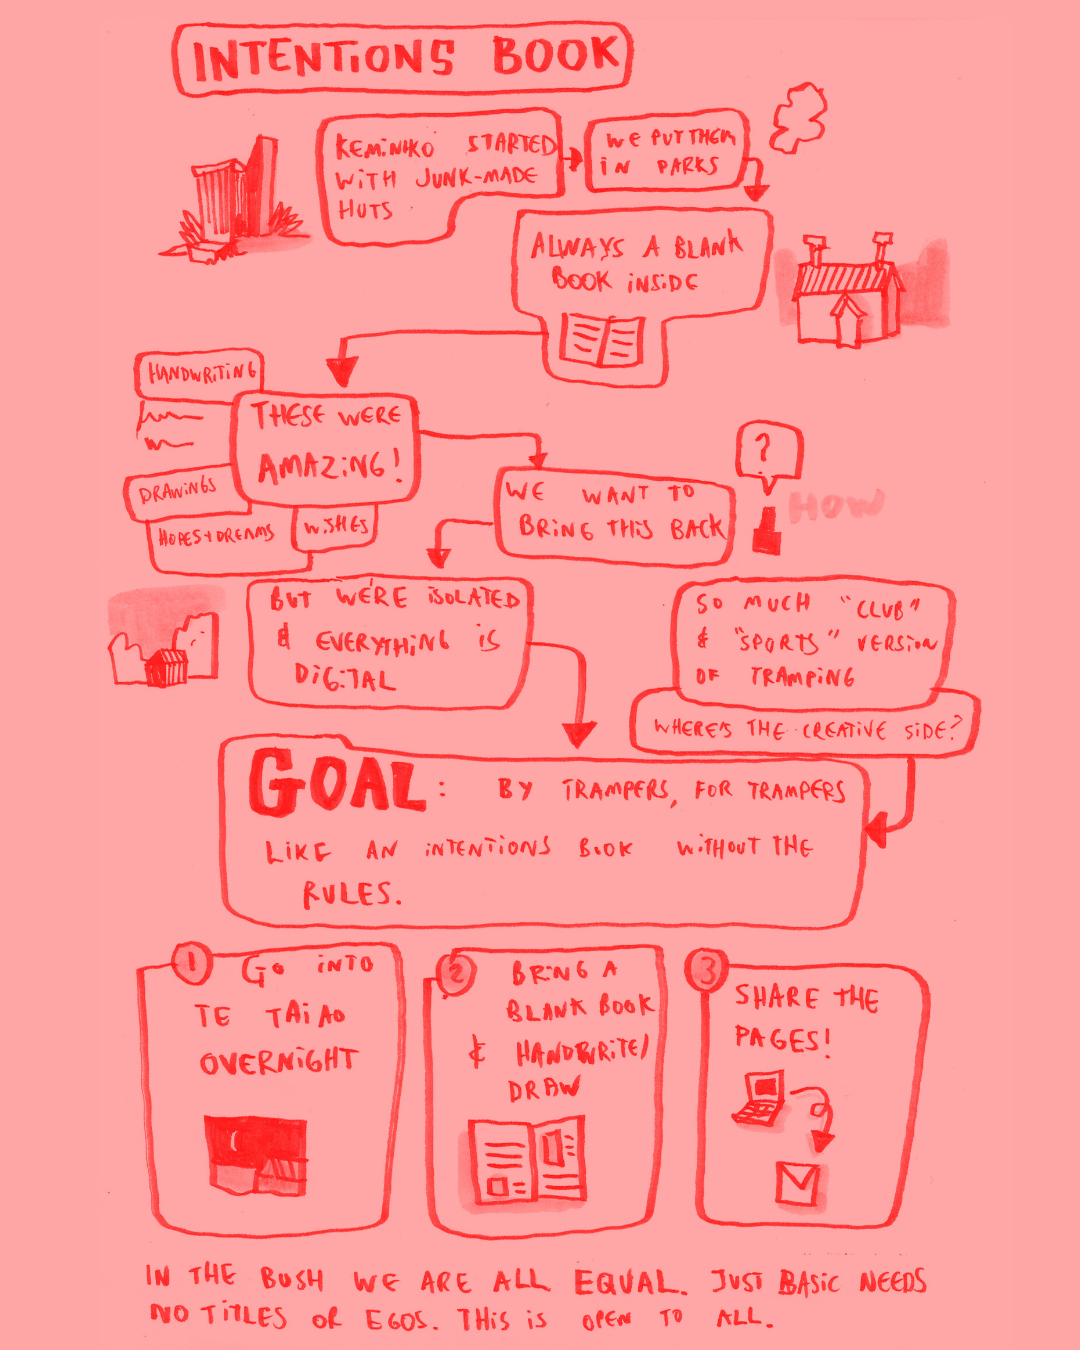 INTENTIONS BOOK
KEMiNiKO STARTED
WiTH JUNK-MADE
HUTS
WE PUT THEM
iN PARKS
ALWAYS A BLANK
BOOK iNSiDE
HANDWRiTiNG
THESE WERE
AMAZiNG!
DRAWiNGS
HOPES + DREAMS
WiSHES
WE WANT TO
BRiNG THiS BACK
?
HOW
BUT WE'RE iSOLATED
& EVERYTHiNG iS
DiGiTAL
SO MUCH "CLUB"
& "SPORTS" VERSiON
OF TRAMPiNG
WHERE'S THE CREATiVE SiDE?
GOAL: BY TRAMPERS, FOR TRAMPERS
LiKE AN iNTENTiONS BOOK WiTHOUT THE
RULES.
1 GO iNTO
TE TAiAO
OVERNiGHT
2 BRiNG A
BLANK BOOK
& HANDWRiTE/
DRAW
3 SHARE THE
PAGES!
IN THE BUSH WE ARE ALL EQUAL. JUST BASiC NEEDS
NO TiTLES OR EGOS. THiS iS OPEN TO ALL.